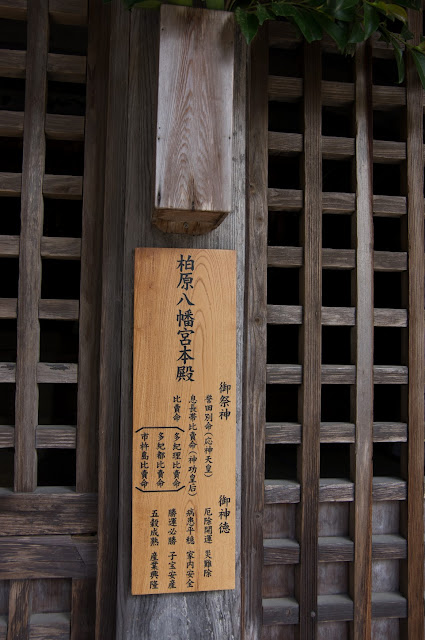 柏原八幡宮本殿
御祭神
誉田別命(応神天皇)
息長帯比売命(神功皇后)
比売命
多紀理比売命
多紀都比売命
市杵島比売命
御神徳
厄除開運 災難除
病患平穏 家内安全
勝運必勝 子宝安産
五穀成熟 産業興隆